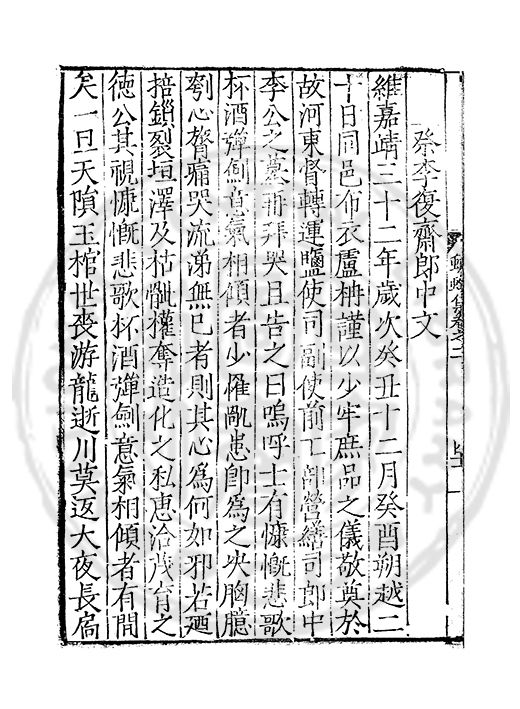 祭李復齋郎中文
維嘉靖三十二年歲次癸丑十二月癸酉朔越二
十日同邑布衣盧柟謹以少牢庶品之儀敬奠於
故河東督轉運鹽使司副使前工部營繕司郎中
李公之墓再拜哭且告之曰嗚呼士有慷慨悲歌
杯酒彈劍意氣相傾者少罹亂患卽爲之決胸臆
刳心膂痛哭流涕無已者則其心爲何如邪若廼
掊鎖裂垣澤及枯骴權奪造化之私惠洽茂育之
德公其視慷慨悲歌杯酒彈劍意氣相傾者有間
矣一旦天隕玉棺世喪游龍逝川莫返大夜長扃
蠛蠓集卷之二